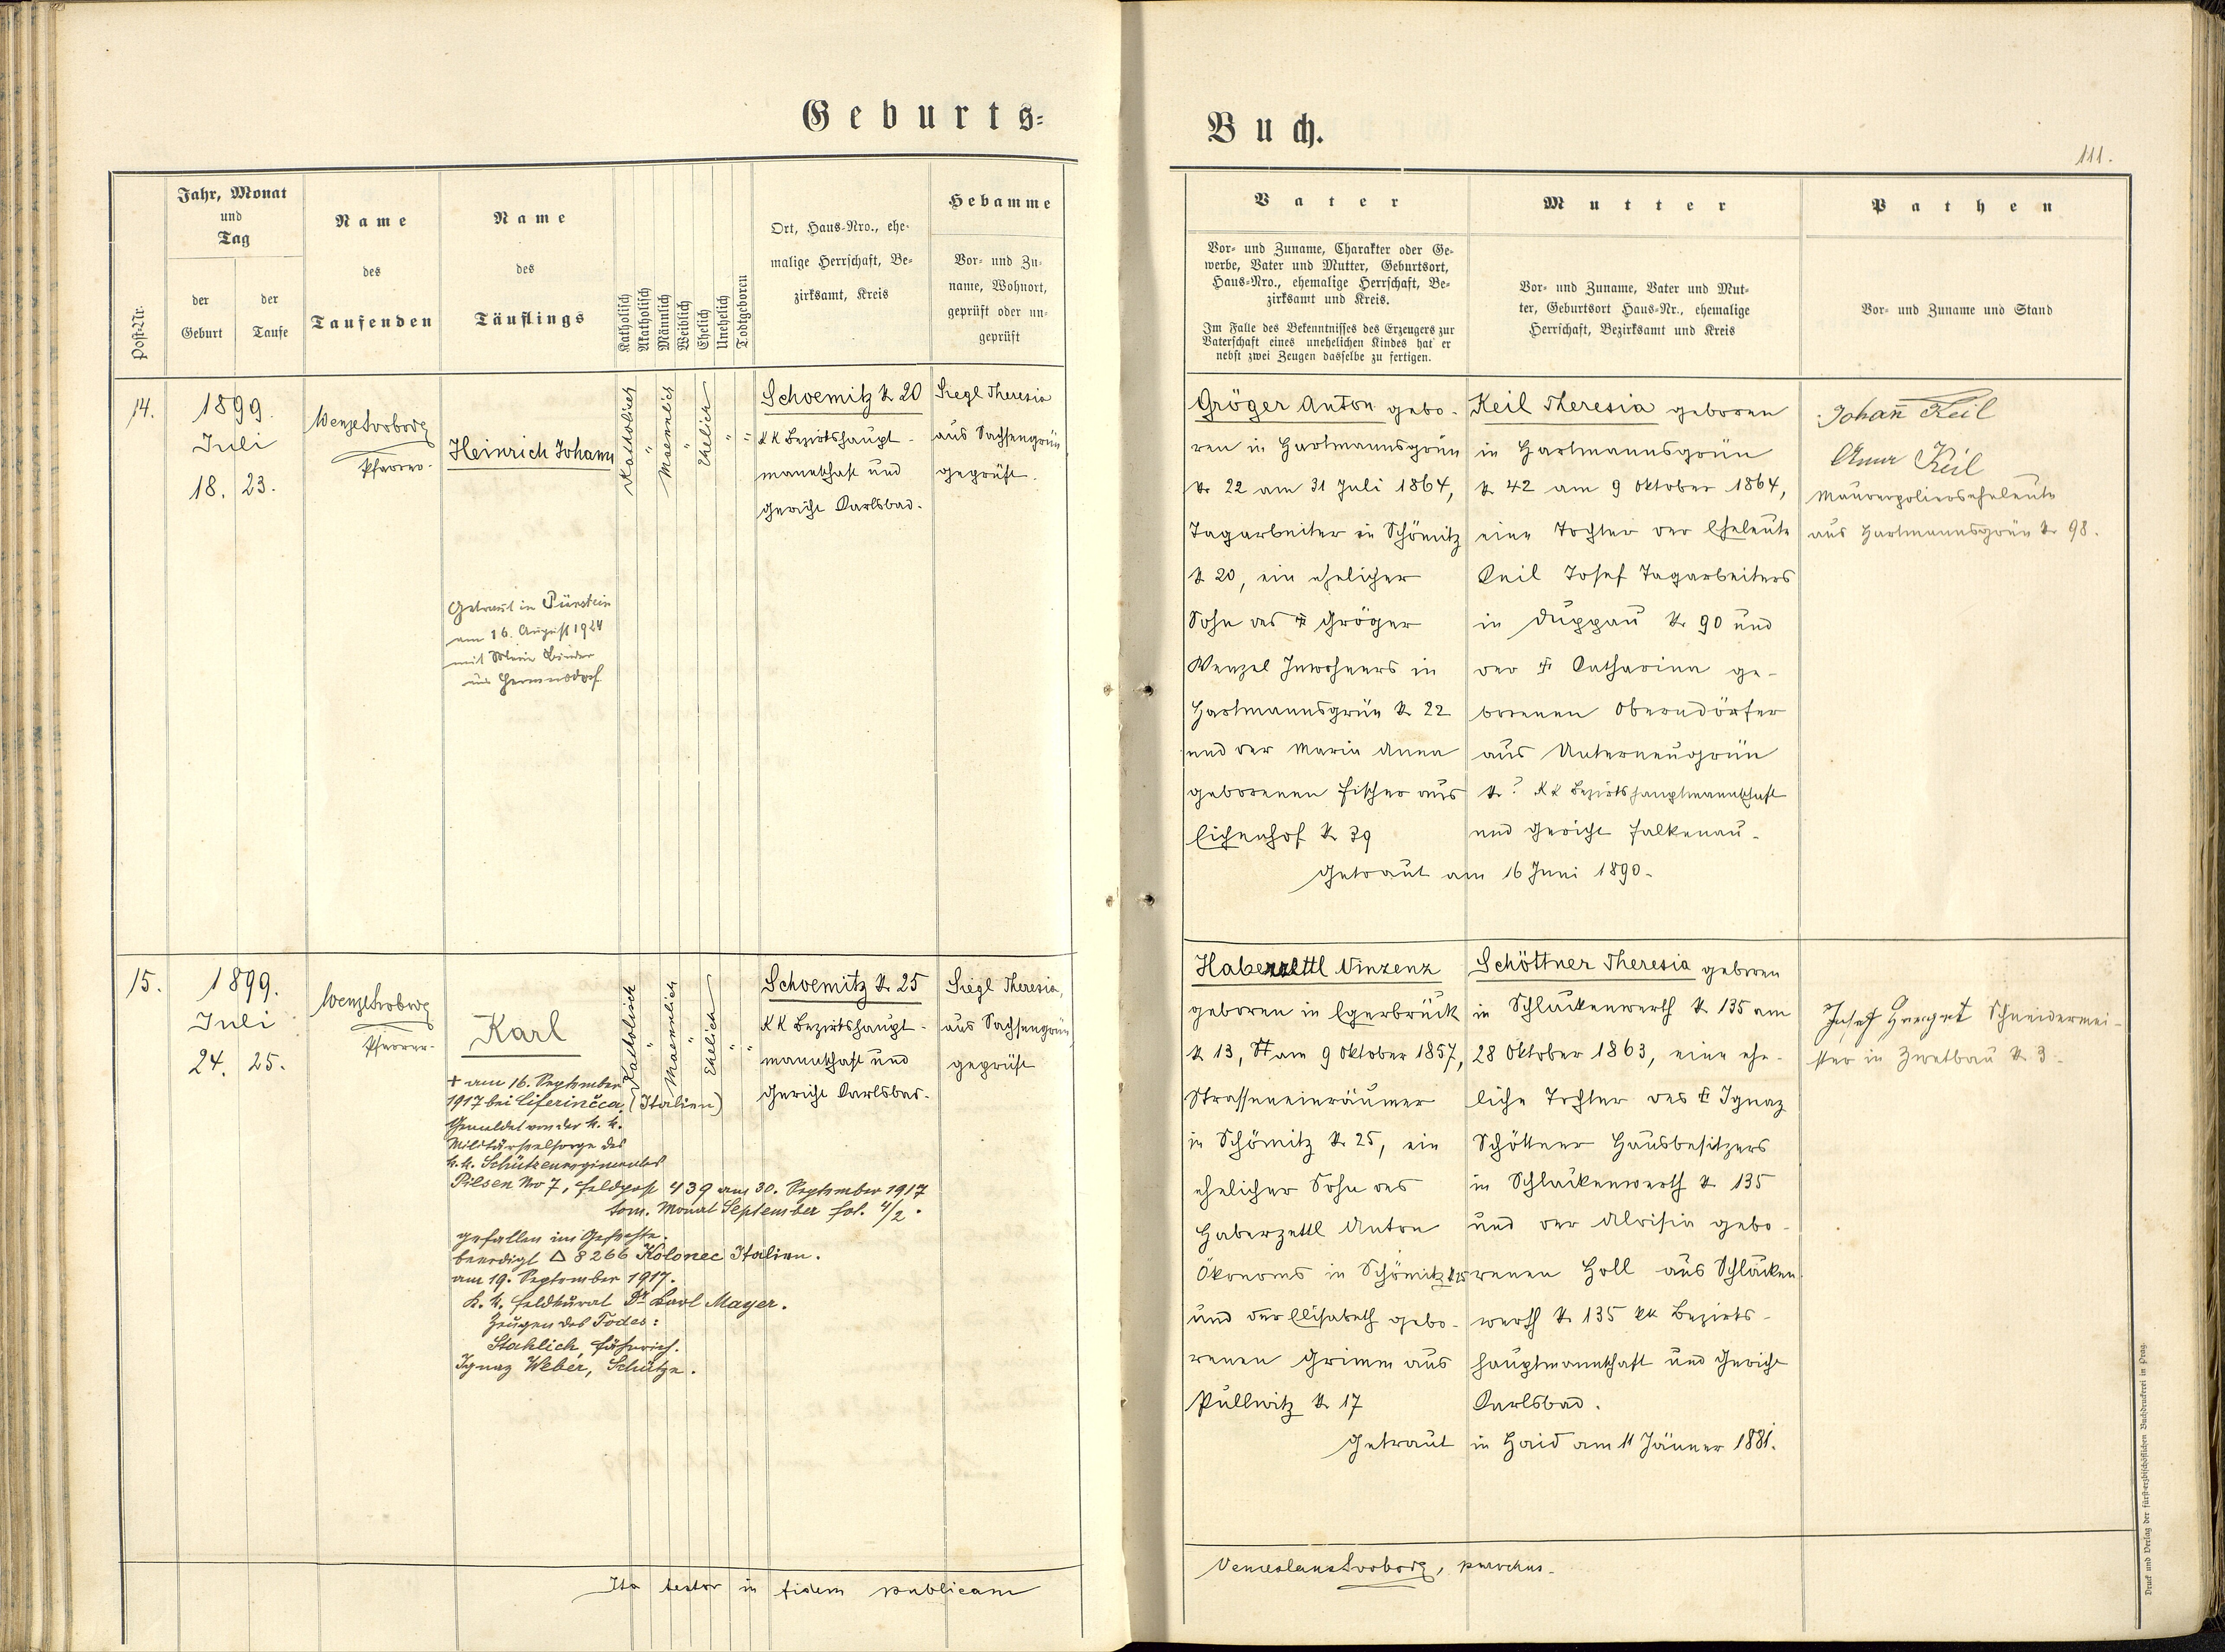 Geburts=
Buch.
111.
Post-Nr.
Jahr, Monat
und
Tag
der
Geburt
der
Taufe
Name
des
Taufenden
Name
des
Täuflings
Katholisch
Akatholisch
Männlich
Weiblich
Ehelich
Unehelich
Todtgeboren
Ort, Haus-Nro., ehe-
malige Herrschaft, Be-
zirksamt, Kreis
Hebamme
Vor- und Zu-
name, Wohnort,
geprüft oder un-
geprüft
Vater
Vor- und Zuname, Charakter oder Ge-
werbe, Vater und Mutter, Geburtsort,
Haus-Nro., ehemalige Herrschaft, Be-
zirksamt und Kreis.
Im Falle des Bekenntnisses des Erzeugers zur
Vaterschaft eines unehelichen Kindes hat er
nebst zwei Zeugen dasselbe zu fertigen.
Mutter
Vor- und Zuname, Vater und Mut-
ter, Geburtsort Haus-Nr., ehemalige
Herrschaft, Bezirksamt und Kreis
Pathen
Vor- und Zuname und Stand
14.
1899.
Juli
18. 23.
Wenzel Svoboda
Pfarrer.
Heinrich Johann
Getraut in Pürstein
am 16. August 1924
mit Marie Binder
aus Hermersdorf
Katholisch
"
Maennlich
"
Ehelich
"
"
Schoemitz N 20
KK Bezirkshaupt-
mannschaft und
Gericht Karlsbad.
Siegl Theresia
aus Sachsengrün
geprüft.
Gröger Anton gebo-
ren in Hartmannsgrün
N 22 am 31 Juli 1864,
Tagarbeiter in Schömitz
N 20, ein ehelicher
Sohn des † Gröger
Wenzel Inwohners in
Hartmannsgrün N 22
und der Maria Anna
geborenen Fischer aus
Eichenhof N 39
Keil Theresia geboren
in Hartmannsgrün
N 42 am 9 Oktober 1864,
eine Tochter der Eheleute
Keil Josef Tagarbeiters
in Duppau N 90 und
der † Catharina ge-
borenen Oberndörfer
aus Unterneugrün
N ? KK Bezirkshauptmannschaft
und Gericht Falkenau.
Getraut am 16 Juni 1890.
Johann Keil
Anna Keil
Maurerpolierseheleute
aus Hartmannsgrün N 98.
15.
1899.
Juli
24. 25.
Wenzel Svoboda
Pfarrer.
Karl
† am 16. September
1917 bei Liferinčca, (Italien)
Gemeldet von der k. k.
Militärseelsorge des
k. k. Schützenregimentes
Pilsen Nro 7, Feldpost 439 am 30. September 1917
tom. Monat September fol. 4/2.
gefallen im Gefechte.
beerdigt △ 8266 Kolonec Italien.
am 19. September 1917.
k. k. Feldkurat Dr Karl Mayer.
Zeugen des Todes:
Stahlich, Fähnrich.
Ignaz Weber, Schütze.
Katholisch
"
Maennlich
"
Ehelich
"
"
Schoemitz N 25
KK Bezirkshaupt-
mannschaft und
Gericht Karlsbad.
Siegl Theresia,
aus Sachsengrün
geprüft
Haberzettl Vinzenz
geboren in Egerbrück
N 13, am 9 Oktober 1857,
Strasseneinräumer
in Schömitz N 25, ein
ehelicher Sohn des
Haberzettl Anton
Ökonoms in Schömitz N 25
und der Elisabeth gebo-
renen Grimm aus
Pullwitz N 17
Schöttner Theresia geboren
in Schlackenwerth N 135 am
28 Oktober 1863, eine ehe-
liche Tochter des † Ignaz
Schöttner Hausbesitzers
in Schlackenwerth N 135
und der Aloisia gebo-
renen Holl aus Schlacken-
werth N 135 KK Bezirks-
hauptmannschaft und Gericht
Karlsbad.
Getraut in Haid am 11 Jänner 1881.
Josef Schneidermei-
ster in Zwetbau N 3.
Ita testor in fidem publicam
Venceslaus Svoboda, parochus.
Druck und Verlag der fürsterzbischöflichen Buchdruckerei in Prag.